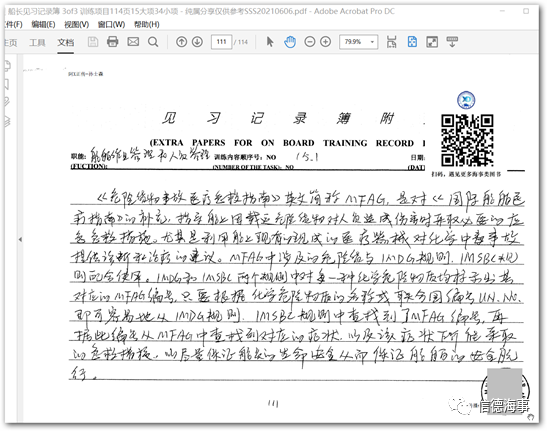 船长见习记录簿 3of3 训练项目114页15大项34小项 - 纯属分享仅供参考SSS20210606.pdf - Adobe Acrobat Pro DC
文件(F) 编辑(E) 视图(V) 窗口(W) 帮助(H)
工具 文档 111 / 114 79.9%
见习记录簿附
(EXTRA PAPERS FOR ON BOARD TRAINING RECORD
职能: 船舶作业管理和人员管理 训练内容顺序号: NO 15.1 日期:
(FUCTION): (NUMBER OF THE TASK): NO (DAT
扫码,遇见更多海事类图书
《危险货物事故医疗急救指南》英文简称MFAG,是对《国际船舶医
疗指南》的补充,指导船上因载运危险货物对人员造成伤害时采取必要的应
急急救措施。尤其是利用船上现有的现成的医药器械对化学中毒事故
提供诊断和治疗的建议。MFAG中涉及的危险货与IMDG规则、IMSBC规
则配合使用。IMDG和IMSBC两个规则中对每一种化学危险物质均标出了其
对应的MFAG编号,只要根据化学危险物质的名称或联合国编号UN.NO.
即可容易地从IMDG规则、IMSBC规则中查找到了MFAG编号,再
据此编号从MFAG中查找到对应的症状,以及该症状下所能采取
的急救措施,以尽量保证船员的生命安全从而保证船舶的安全航
行。
111
信德海事